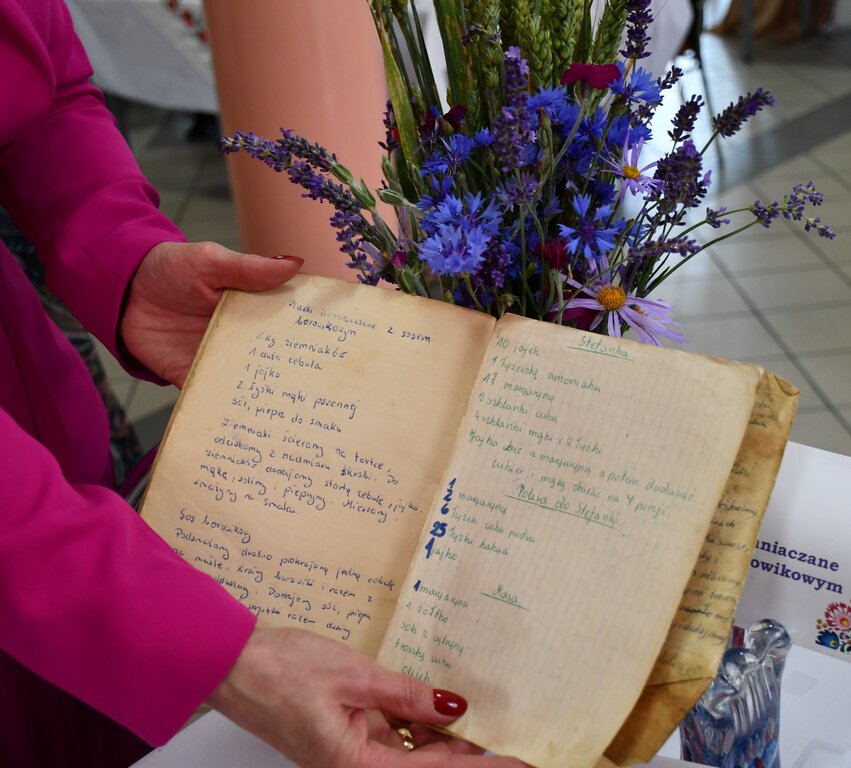 Placki ziemniaczane z sosem
borowikowym
1 kg ziemniaków
1 duża cebula
1 jajko
2 łyżki mąki pszennej
sól, pieprz do smaku
Ziemniaki ścieramy na tartce,
odciskamy z nadmiaru skrobi. Do
ziemniaków dodajemy startą cebulę, jajko,
mąkę, solimy i pieprzymy. Mieszamy,
smażymy na smalcu.
Sos borowikowy
Podsmażamy drobno pokrojoną jedną cebulę
na maśle. Kroimy borowiki i razem z
Dodajemy sól, pieprz
razem dusimy
Stefanka
10 jajek
1 łyżeczkę amoniaku
17 margaryny
2 szklanki cukru
4 szklanki mąki i 2 łyżki
Jajka ubić z margaryną a potem dodawać
cukier, mąkę, dzielić na 4 porcje.
Polewa do Stefanki
1/2 margaryny
6 łyżek cukru pudru
2 łyżki kakao
1 jajko
Masa
1 margaryna
1 żółtko
sok z cytryny
troszkę cukru
olejek
niaczane
owikowym